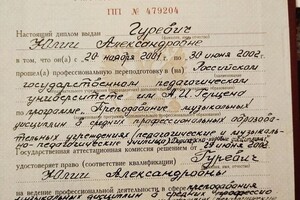 ПП № 479204
Настоящий диплом выдан Гуревич
Юлии Александровне
в том, что он(а) с 20 ноября 2001 г. по 30 июня 2002 г.
прошел(а) профессиональную переподготовку в (на) Российском
государственном педагогическом
университете им. А.И. Герцена
по программе Преподавание музыкальных
дисциплин в средних профессиональных образова-
тельных учреждениях (педагогические и музыкаль-
но-педагогические училища)
Государственная аттестационная комиссия решением от 29 июня 2002 г.
удостоверяет право (соответствие квалификации) Гуревич
Юлии Александровны
на ведение профессиональной деятельности в сфере преподавания
музыкальных дисциплин в средних профессио